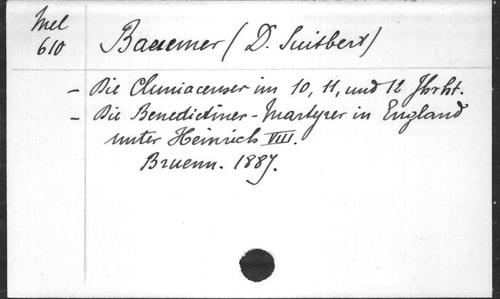 Mel
610
Baeumer (D. Suitbert)
- Die Cluniacenser im 10, 11, und 12 Jhrht.
- Die Benedictiner-Martyrer in England
unter Heinrich VIII.
Bruenn. 1887.